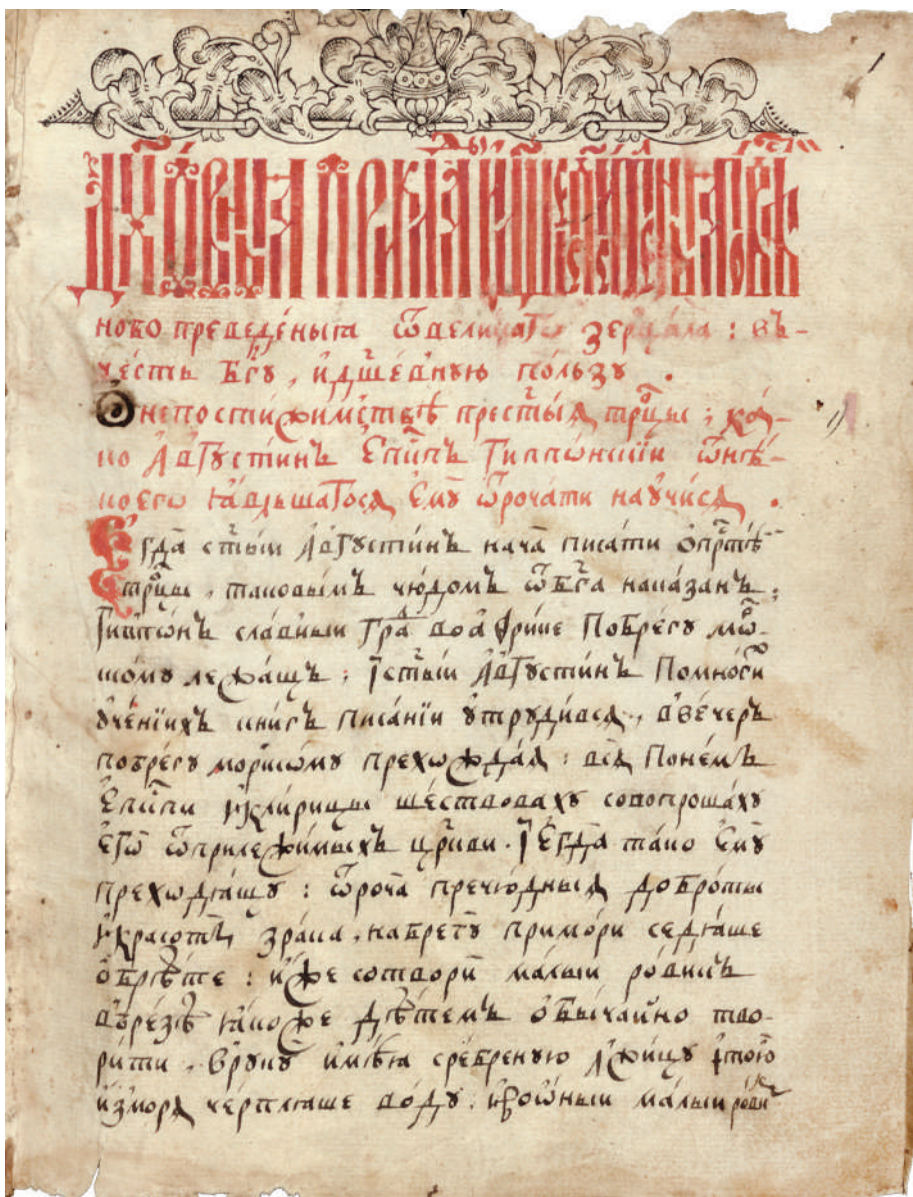 новопреведеныѧ ѿвелицаго зерцала : въ-
че́сть бг҃у , идш҃е́внꙋю по́льзꙋ .
Ѡнепостижимствѣ прест҃ы́ѧ трⷪ҇цы ; ка́-
ко А҆ѵгꙋсти́нъ Е҆пⷭ҇кпъ Гиппѡ́нскїи ѿнѣ́-
коегѡ ꙗ҆вльшагосѧ є҆мꙋ̀ ѿроча́ти наꙋчи́сѧ .
Е҆гда̀ ст҃ы́й А҆ѵгꙋсти́нъ нача̀ писа́ти ѡ҆прест҃ѣ́
трⷪ҇цы , таковы́мъ чю́домъ ѿбг҃а нака́занъ ;
Гиппѡ́нъ сла́вныи гра́ⷣ воа҆фри́це побре́гꙋ мо́ⷬ-
скомꙋ лежа́щъ ; і҆ст҃ы́й А҆ѵгꙋсти́нъ помно́гїи
ᲂу҆че́нїихъ кни́гъ писа́нїи ᲂу҆трꙋди́всѧ , вве́черъ
побре́гꙋ морско́мꙋ прехожда́ѧ : всѝ поне́мъ
Е҆пⷭ҇кпи и҆кли́рицы ше́ствовахꙋ совопроша́хꙋ
є҆го̀ ѡ҆прилежи́мыхъ цр҃кви . І҆є҆гда̀ та́ко є҆мꙋ̀
преходѧ́щꙋ : ѿроча̀ пречю́дныѧ добро́ты
и҆красоты̀ зра́ка , набре́гꙋ примо́ри седѧ́ше
ѡ҆брѣ́те : и҆́же сотворѝ ма́лыи ро́викъ
вбре́зѣ ꙗ҆́коже дѣ́темъ ѡ҆бы́чайно тво-
ри́ти , врꙋкꙋ̀ и҆мѣ́ѧ сре́бренꙋю лжи́цꙋ і҆то́ю
и҆змо́рѧ че́рплѧше во́дꙋ , и҆во́ный ма́лыи ро́виⷦ҇